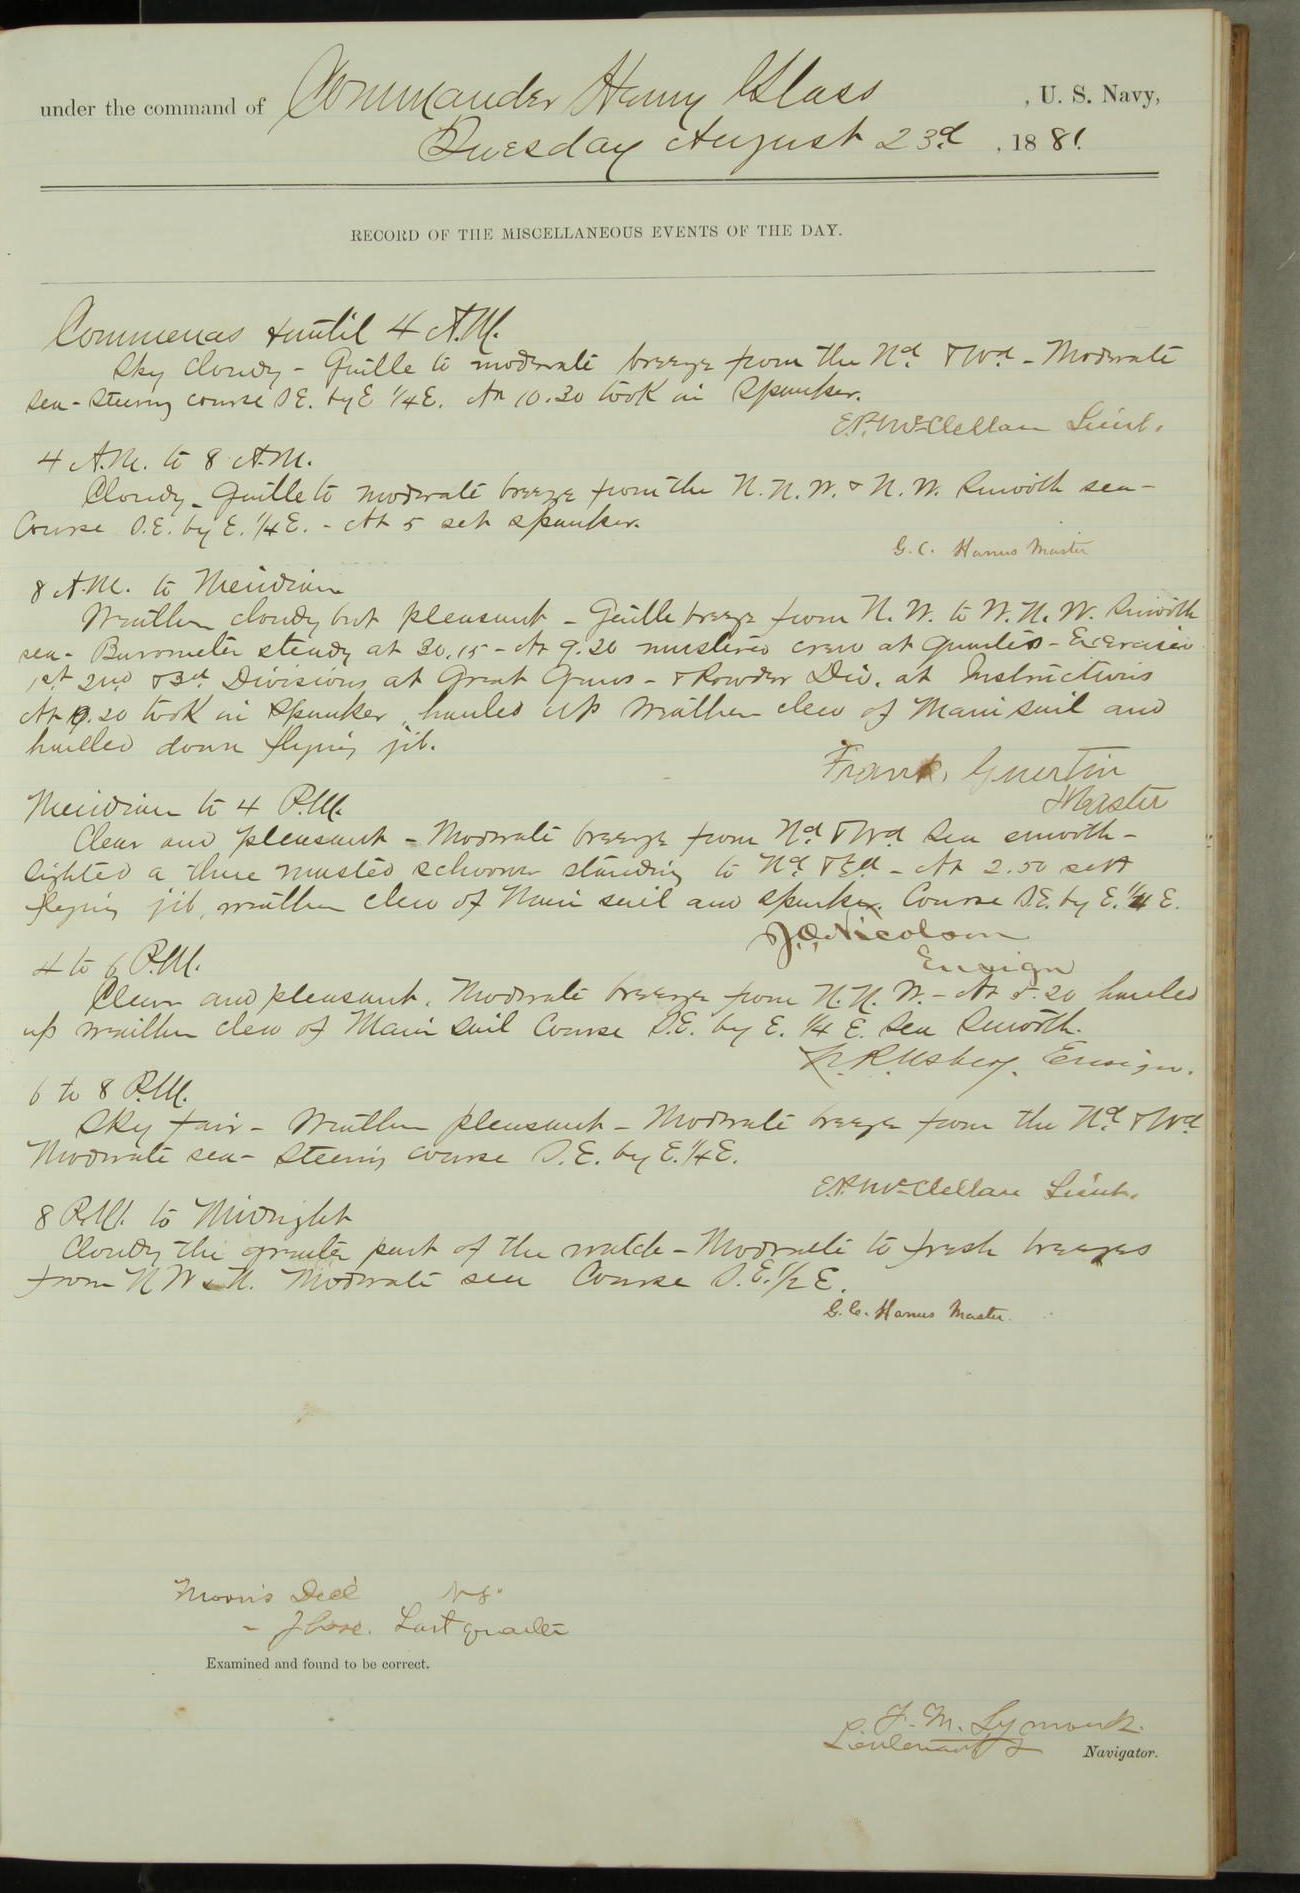 under the command of Commander Henry Glass , U. S. Navy,
Tuesday August 23d , 1881.
RECORD OF THE MISCELLANEOUS EVENTS OF THE DAY.
Commences & until 4 A.M.
Sky cloudy - Gentle to moderate breeze from the Nd. & Wd - Moderate
sea - Steering course S.E. by E 1/4 E. At 10.30 took in Spanker.
E.P. McClellan Lieut.
4 A.M. to 8 A.M.
Cloudy - Gentle to moderate breeze from the N.N.W. & N.W. Smooth sea -
Course S.E. by E. 1/4 E. - At 5 set spanker.
G. C. Hanus Master
8 A.M. to Meridian
Weather cloudy but pleasant - Gentle breeze from N.W. to W.N.W. Smooth
sea - Barometer steady at 30.15 - At 9.20 mustered crew at quarters - Exercised
1st. 2nd & 3d. Divisions at Great Guns - & Powder Div. at Instructions
At 9.20 took in Spanker, hauled up weather clew of Mainsail and
hauled down flying jib.
Frank. Guertin
Master
Meridian to 4 P.M.
Clear and pleasant - Moderate breeze from Nd & Wd Sea smooth -
Sighted a three masted schooner standing to Nd. & Ed - At 2.50 set
flying jib, weather clew of Main sail and spanker. Course S.E. by E. 1/4 E.
J.O. Nicolson
Ensign
4 to 6 P.M.
Clear and pleasant. Moderate breeze from N.N.W. - At 5.20 hauled
up weather clew of Main sail Course S.E. by E. 1/4 E. Sea Smooth.
N.R. Usher, Ensign.
6 to 8 P.M.
Sky fair - Weather pleasant - Moderate breeze from the Nd. & Wd
Moderate sea - Steering course S.E. by E. 1/4 E.
E.P. McClellan Lieut.
8 P.M. to Midnight
Cloudy the greater part of the watch - Moderate to fresh breezes
from N W & N. Moderate sea Course S.E. 1/2 E.
G.C. Hanus Master.
Moon's Decl
" Phase. Last quarter
Examined and found to be correct.
F. M. Symonds.
Lieutenant & Navigator.